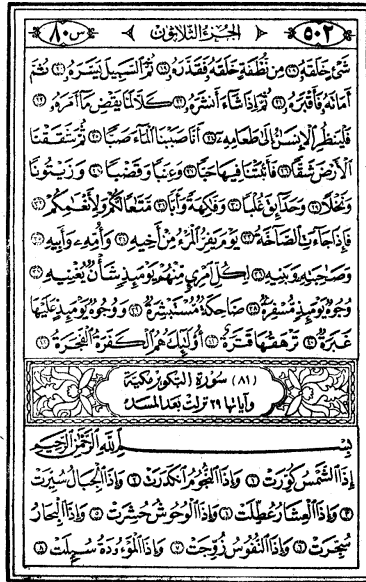 ٥٠٢ الجزء الثلاثون س ٨٠
شَىْءٍ خَلَقَهُۥ ١٨ مِن نُّطْفَةٍ خَلَقَهُۥ فَقَدَّرَهُۥ ١٩ ثُمَّ ٱلسَّبِيلَ يَسَّرَهُۥ ٢٠ ثُمَّ
أَمَاتَهُۥ فَأَقْبَرَهُۥ ٢١ ثُمَّ إِذَا شَآءَ أَنشَرَهُۥ ٢٢ كَلَّا لَمَّا يَقْضِ مَآ أَمَرَهُۥ ٢٣
فَلْيَنظُرِ ٱلْإِنسَٰنُ إِلَىٰ طَعَامِهِۦٓ ٢٤ أَنَّا صَبَبْنَا ٱلْمَآءَ صَبًّا ٢٥ ثُمَّ شَقَقْنَا
ٱلْأَرْضَ شَقًّا ٢٦ فَأَنۢبَتْنَا فِيهَا حَبًّا ٢٧ وَعِنَبًا وَقَضْبًا ٢٨ وَزَيْتُونًا
وَنَخْلًا ٢٩ وَحَدَآئِقَ غُلْبًا ٣٠ وَفَٰكِهَةً وَأَبًّا ٣١ مَّتَٰعًا لَّكُمْ وَلِأَنْعَٰمِكُمْ ٣٢
فَإِذَا جَآءَتِ ٱلصَّآخَّةُ ٣٣ يَوْمَ يَفِرُّ ٱلْمَرْءُ مِنْ أَخِيهِ ٣٤ وَأُمِّهِۦ وَأَبِيهِ ٣٥
وَصَٰحِبَتِهِۦ وَبَنِيهِ ٣٦ لِكُلِّ ٱمْرِئٍ مِّنْهُمْ يَوْمَئِذٍ شَأْنٌ يُغْنِيهِ ٣٧
وُجُوهٌ يَوْمَئِذٍ مُّسْفِرَةٌ ٣٨ ضَاحِكَةٌ مُّسْتَبْشِرَةٌ ٣٩ وَوُجُوهٌ يَوْمَئِذٍ عَلَيْهَا
غَبَرَةٌ ٤٠ تَرْهَقُهَا قَتَرَةٌ ٤١ أُو۟لَٰٓئِكَ هُمُ ٱلْكَفَرَةُ ٱلْفَجَرَةُ ٤٢
(٨١) سورة التكوير مكية
وآياتها ٢٩ نزلت بعد المسد
بِسْمِ ٱللَّهِ ٱلرَّحْمَٰنِ ٱلرَّحِيمِ
إِذَا ٱلشَّمْسُ كُوِّرَتْ ١ وَإِذَا ٱلنُّجُومُ ٱنكَدَرَتْ ٢ وَإِذَا ٱلْجِبَالُ سُيِّرَتْ
٣ وَإِذَا ٱلْعِشَارُ عُطِّلَتْ ٤ وَإِذَا ٱلْوُحُوشُ حُشِرَتْ ٥ وَإِذَا ٱلْبِحَارُ
سُجِّرَتْ ٦ وَإِذَا ٱلنُّفُوسُ زُوِّجَتْ ٧ وَإِذَا ٱلْمَوْءُۥدَةُ سُئِلَتْ ٨